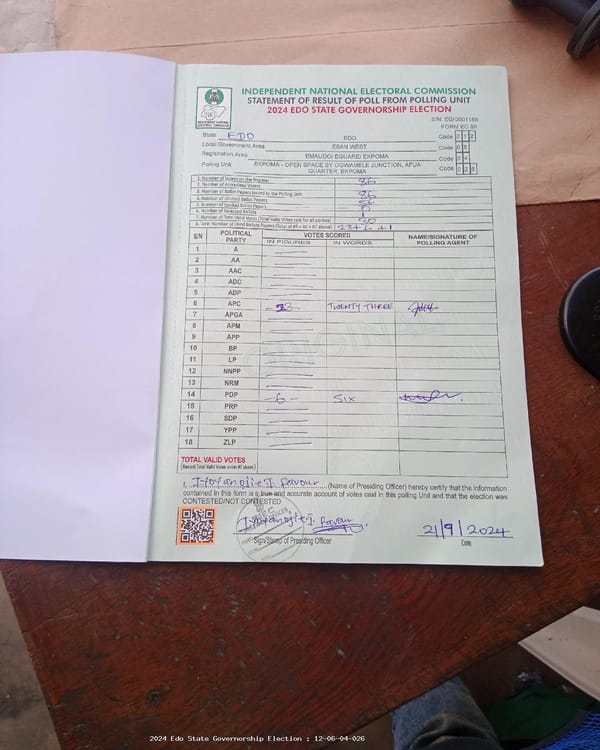 INDEPENDENT NATIONAL ELECTORAL COMMISSION
STATEMENT OF RESULT OF POLL FROM POLLING UNIT
2024 EDO STATE GOVERNORSHIP ELECTION
S/N: EG/0001188
FORM EC 8A
State EDO EDO Code 012
Local Government Area ESAN WEST Code 06
Registration Area EMAUDO/ EGUARE/ EKPOMA Code 04
Polling Unit EKPOMA - OPEN SPACE BY OGWAMELE JUNCTION, AFUA QUARTER, EKPOMA Code 026
1. Number of Voters on the Register 86
2. Number of Accredited Voters
3. Number of Ballot Papers Issued to the Polling Unit 86
4. Number of Unused Ballot Papers 56
5. Number of Spoiled Ballot Papers 0
6. Number of Rejected Ballots 1
7. Number of Total Valid Votes (Total Valid Votes cast for all parties)
8. Total Number of Used Ballots Papers (Total of #5 + #6 + #7 above) 23+6+1
S/N POLITICAL PARTY VOTES SCORED NAME/SIGNATURE OF POLLING AGENT
IN FIGURES IN WORDS
1 A
2 AA
3 AAC
4 ADC
5 ADP
6 APC -23- TWENTY THREE
7 APGA
8 APM
9 APP
10 BP
11 LP
12 NNPP
13 NRM
14 PDP -6- SIX
15 PRP
16 SDP
17 YPP
18 ZLP
TOTAL VALID VOTES
(Record Total Valid Votes under #7 above)
I, Favour (Name of Presiding Officer) hereby certify that the information
contained in this form is a true and accurate account of votes cast in this polling Unit and that the election was
CONTESTED/NOT CONTESTED
Favour 21/9/2024
Sign/Stamp of Presiding Officer Date
2024 Edo State Governorship Election : 12-06-04-026